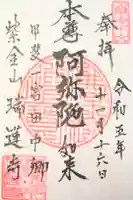 奉拝
令和五年
十一月十六日
本尊 阿弥陀如来
甲斐一宮田中郷
紫金山 瑞蓮寺